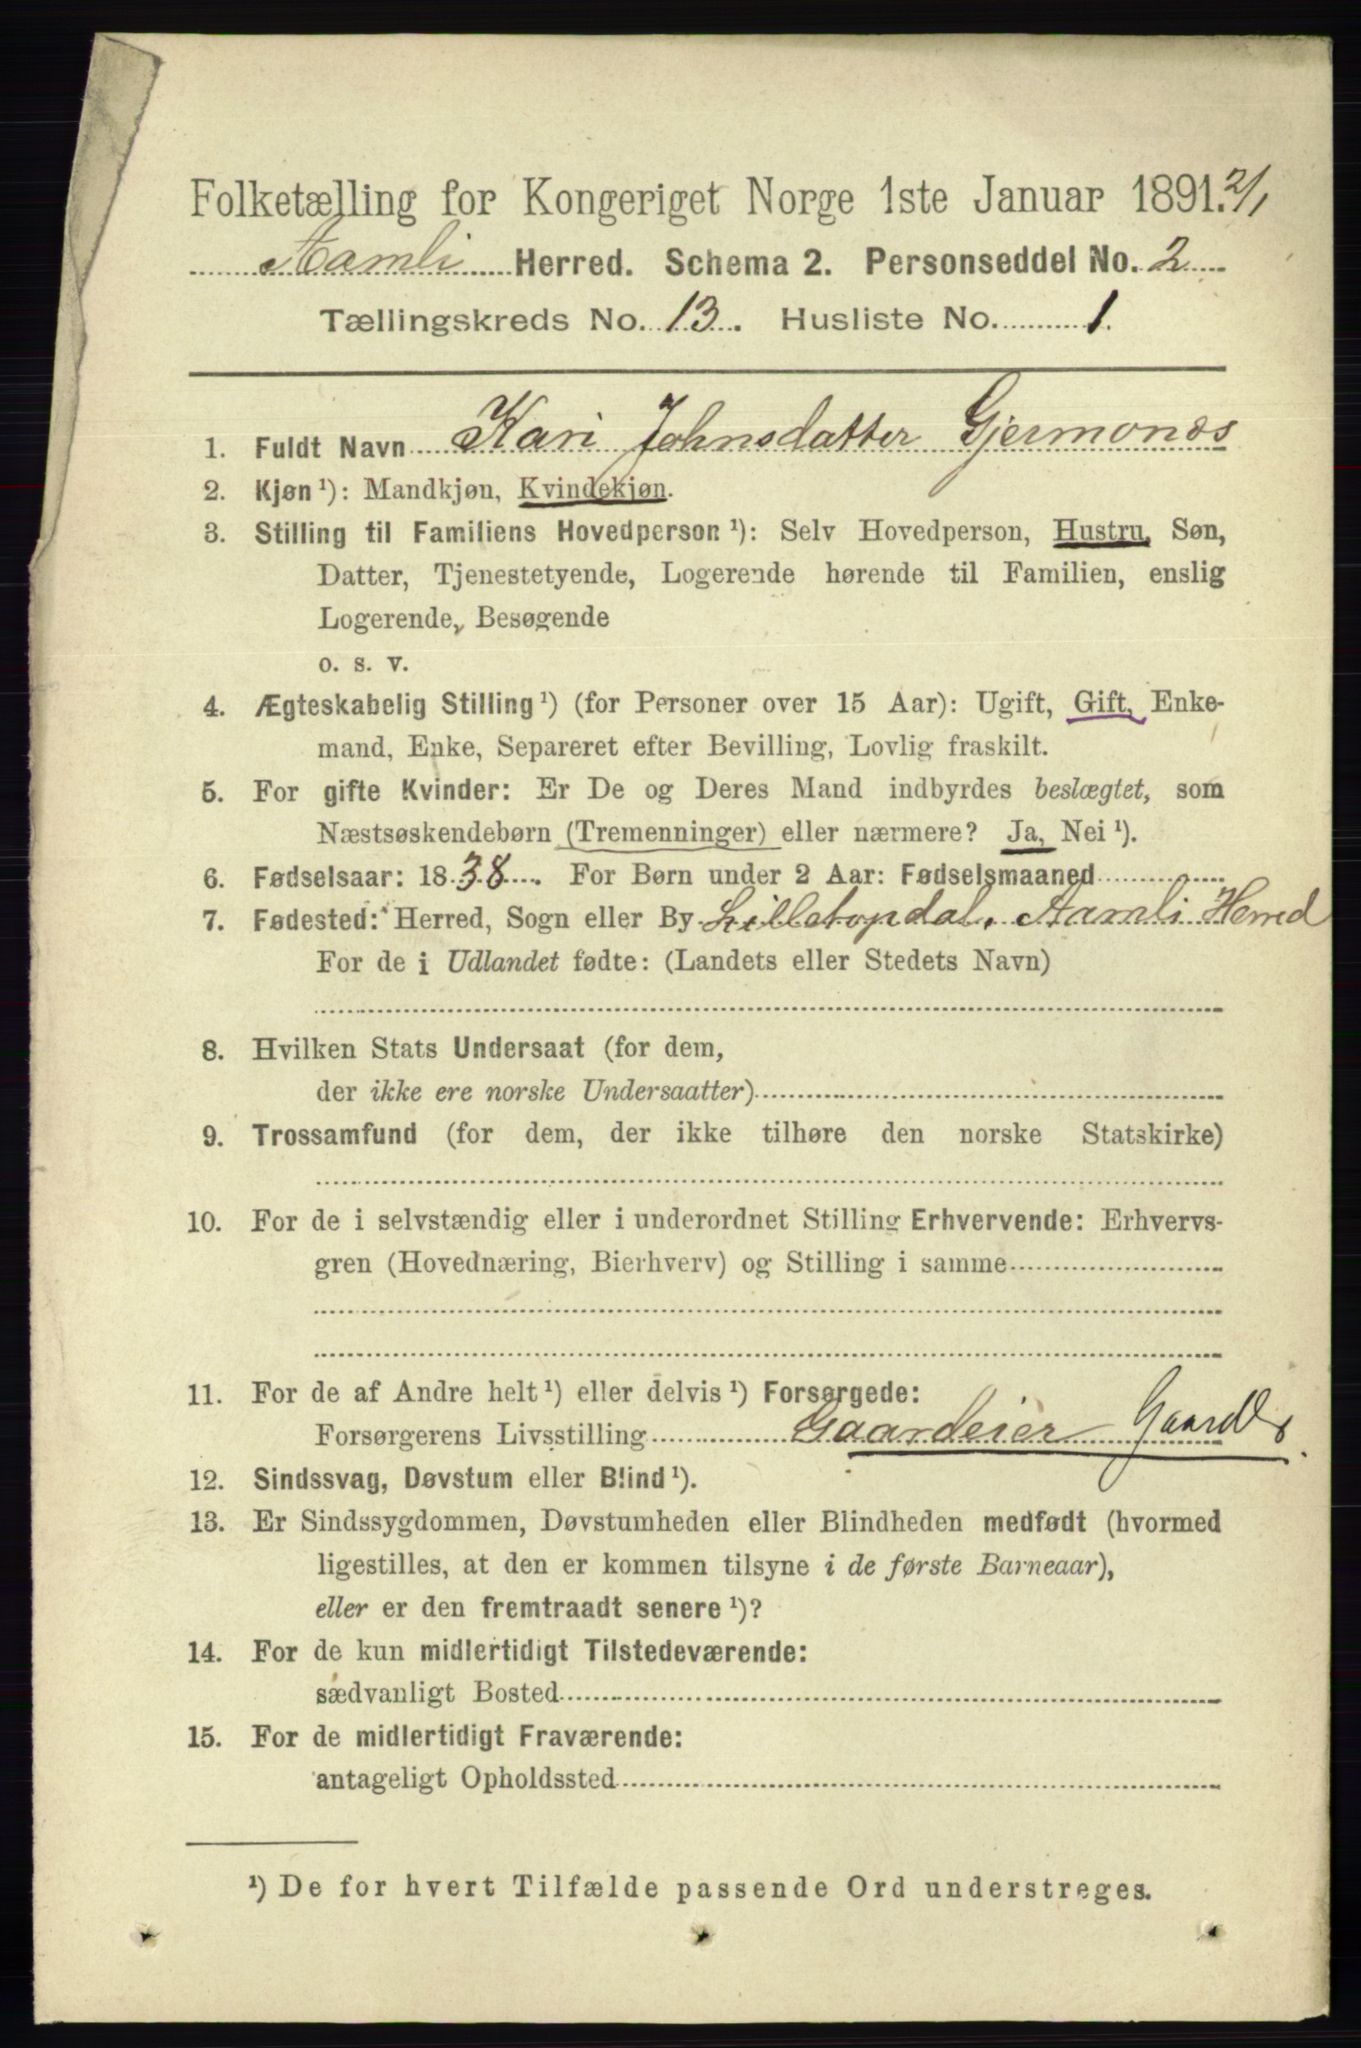 Folketælling for Kongeriget Norge 1ste Januar 1891. 2/1
Aamli Herred. Schema 2. Personseddel No. 2
Tællingskreds No. 13. Husliste No. 1.
1. Fuldt Navn Kari Johnsdatter Gjermonæs
2. Kjøn ¹): Mandkjøn, Kvindekjøn.
3. Stilling til Familiens Hovedperson ¹): Selv Hovedperson, Hustru, Søn,
Datter, Tjenestetyende, Logerende hørende til Familien, enslig
Logerende, Besøgende
o. s. v.
4. Ægteskabelig Stilling ¹) (for Personer over 15 Aar): Ugift, Gift, Enke-
mand, Enke, Separeret efter Bevilling, Lovlig fraskilt.
5. For gifte Kvinder: Er De og Deres Mand indbyrdes beslægtet, som
Næstsøskendebørn (Tremenninger) eller nærmere? Ja, Nei ¹).
6. Fødselsaar: 1838. For Børn under 2 Aar: Fødselsmaaned
7. Fødested: Herred, Sogn eller By Lilletopdal, Aamli Herred
For de i Udlandet fødte: (Landets eller Stedets Navn)
8. Hvilken Stats Undersaat (for dem,
der ikke ere norske Undersaatter)
9. Trossamfund (for dem, der ikke tilhøre den norske Statskirke)
10. For de i selvstændig eller i underordnet Stilling Erhvervende: Erhvervs-
gren (Hovednæring, Bierhverv) og Stilling i samme
11. For de af Andre helt ¹) eller delvis ¹) Forsørgede:
Forsørgerens Livsstilling Gaardeier
12. Sindssvag, Døvstum eller Blind ¹).
13. Er Sindssygdommen, Døvstumheden eller Blindheden medfødt (hvormed
ligestilles, at den er kommen tilsyne i de første Barneaar),
eller er den fremtraadt senere ¹)?
14. For de kun midlertidigt Tilstedeværende:
sædvanligt Bosted
15. For de midlertidigt Fraværende:
antageligt Opholdssted
¹) De for hvert Tilfælde passende Ord understreges.